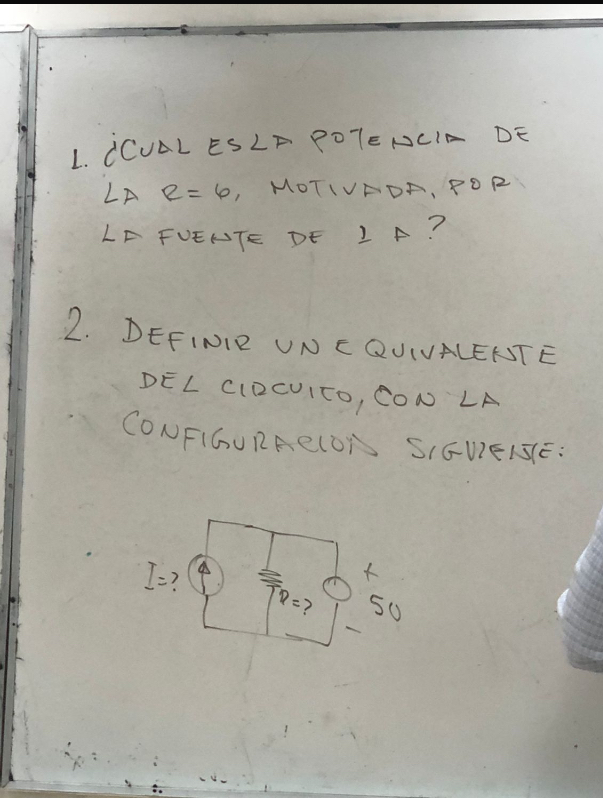 1. ¿CUAL ES LA POTENCIA DE
LA R=6, MOTIVADA, POR
LA FUENTE DE 1 A?
2. DEFINIR UN EQUIVALENTE
DEL CIRCUITO, CON LA
CONFIGURACION SIGUIENTE:
I=?
R=?
+
50
-